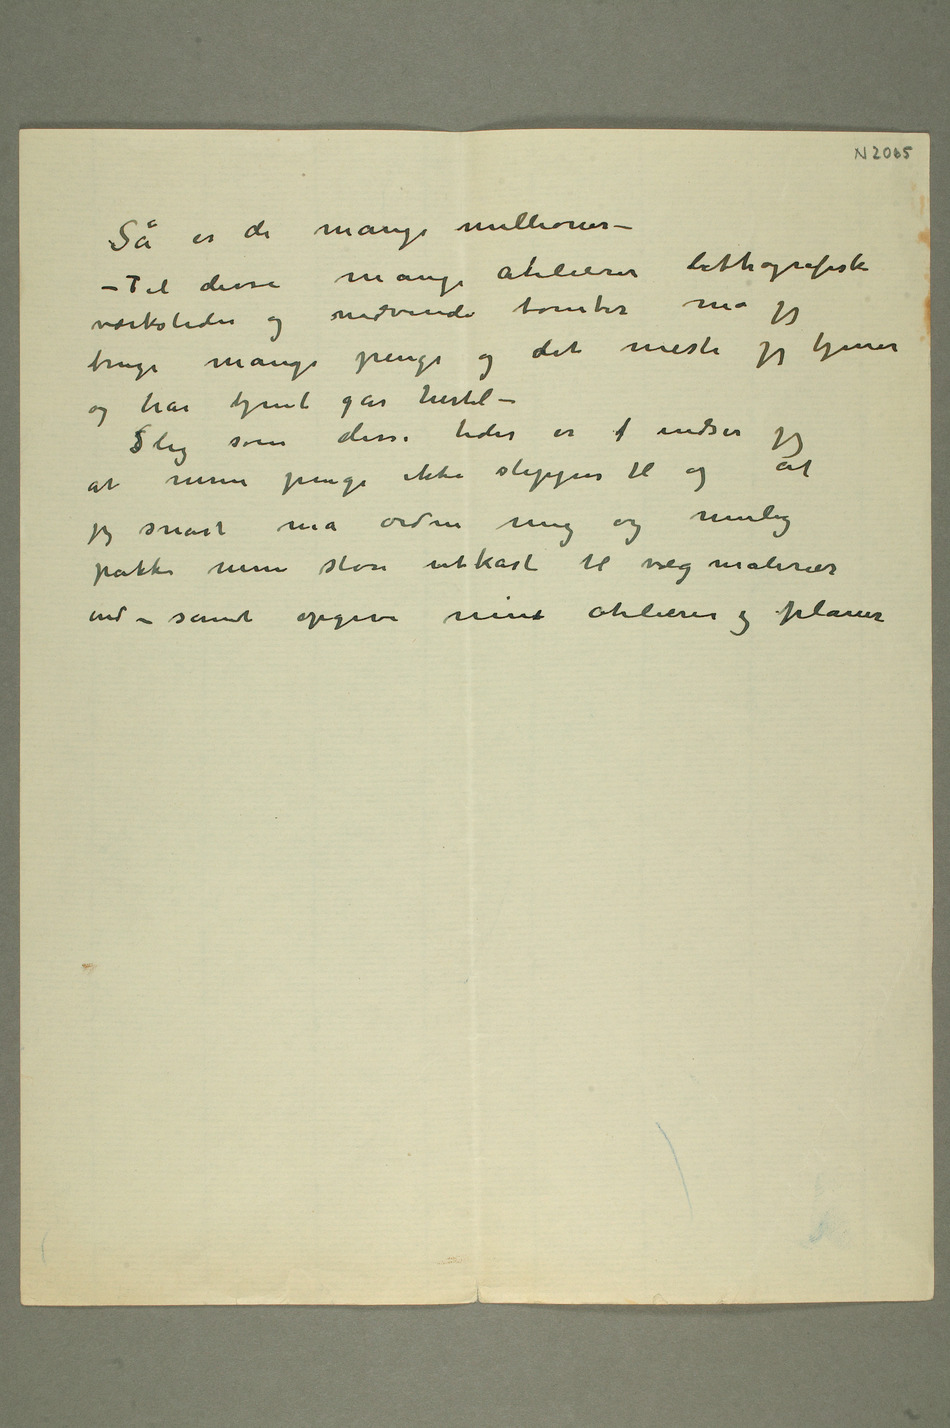 N 2065
Så er de mange millioner –
– Til disse mange atelierer lithografiske
værksteder og nødvendi tomter må jeg
bruge mange penge og det meste jeg tjener
og har tjent går hertil –
Slig som disse tider er indser jeg
at mine penge ikke slipper til og at
jeg snart må ordne mig og mulig
pakke mine store utkast til vægmalerier
ind – samt opgive mine atelierer og planer